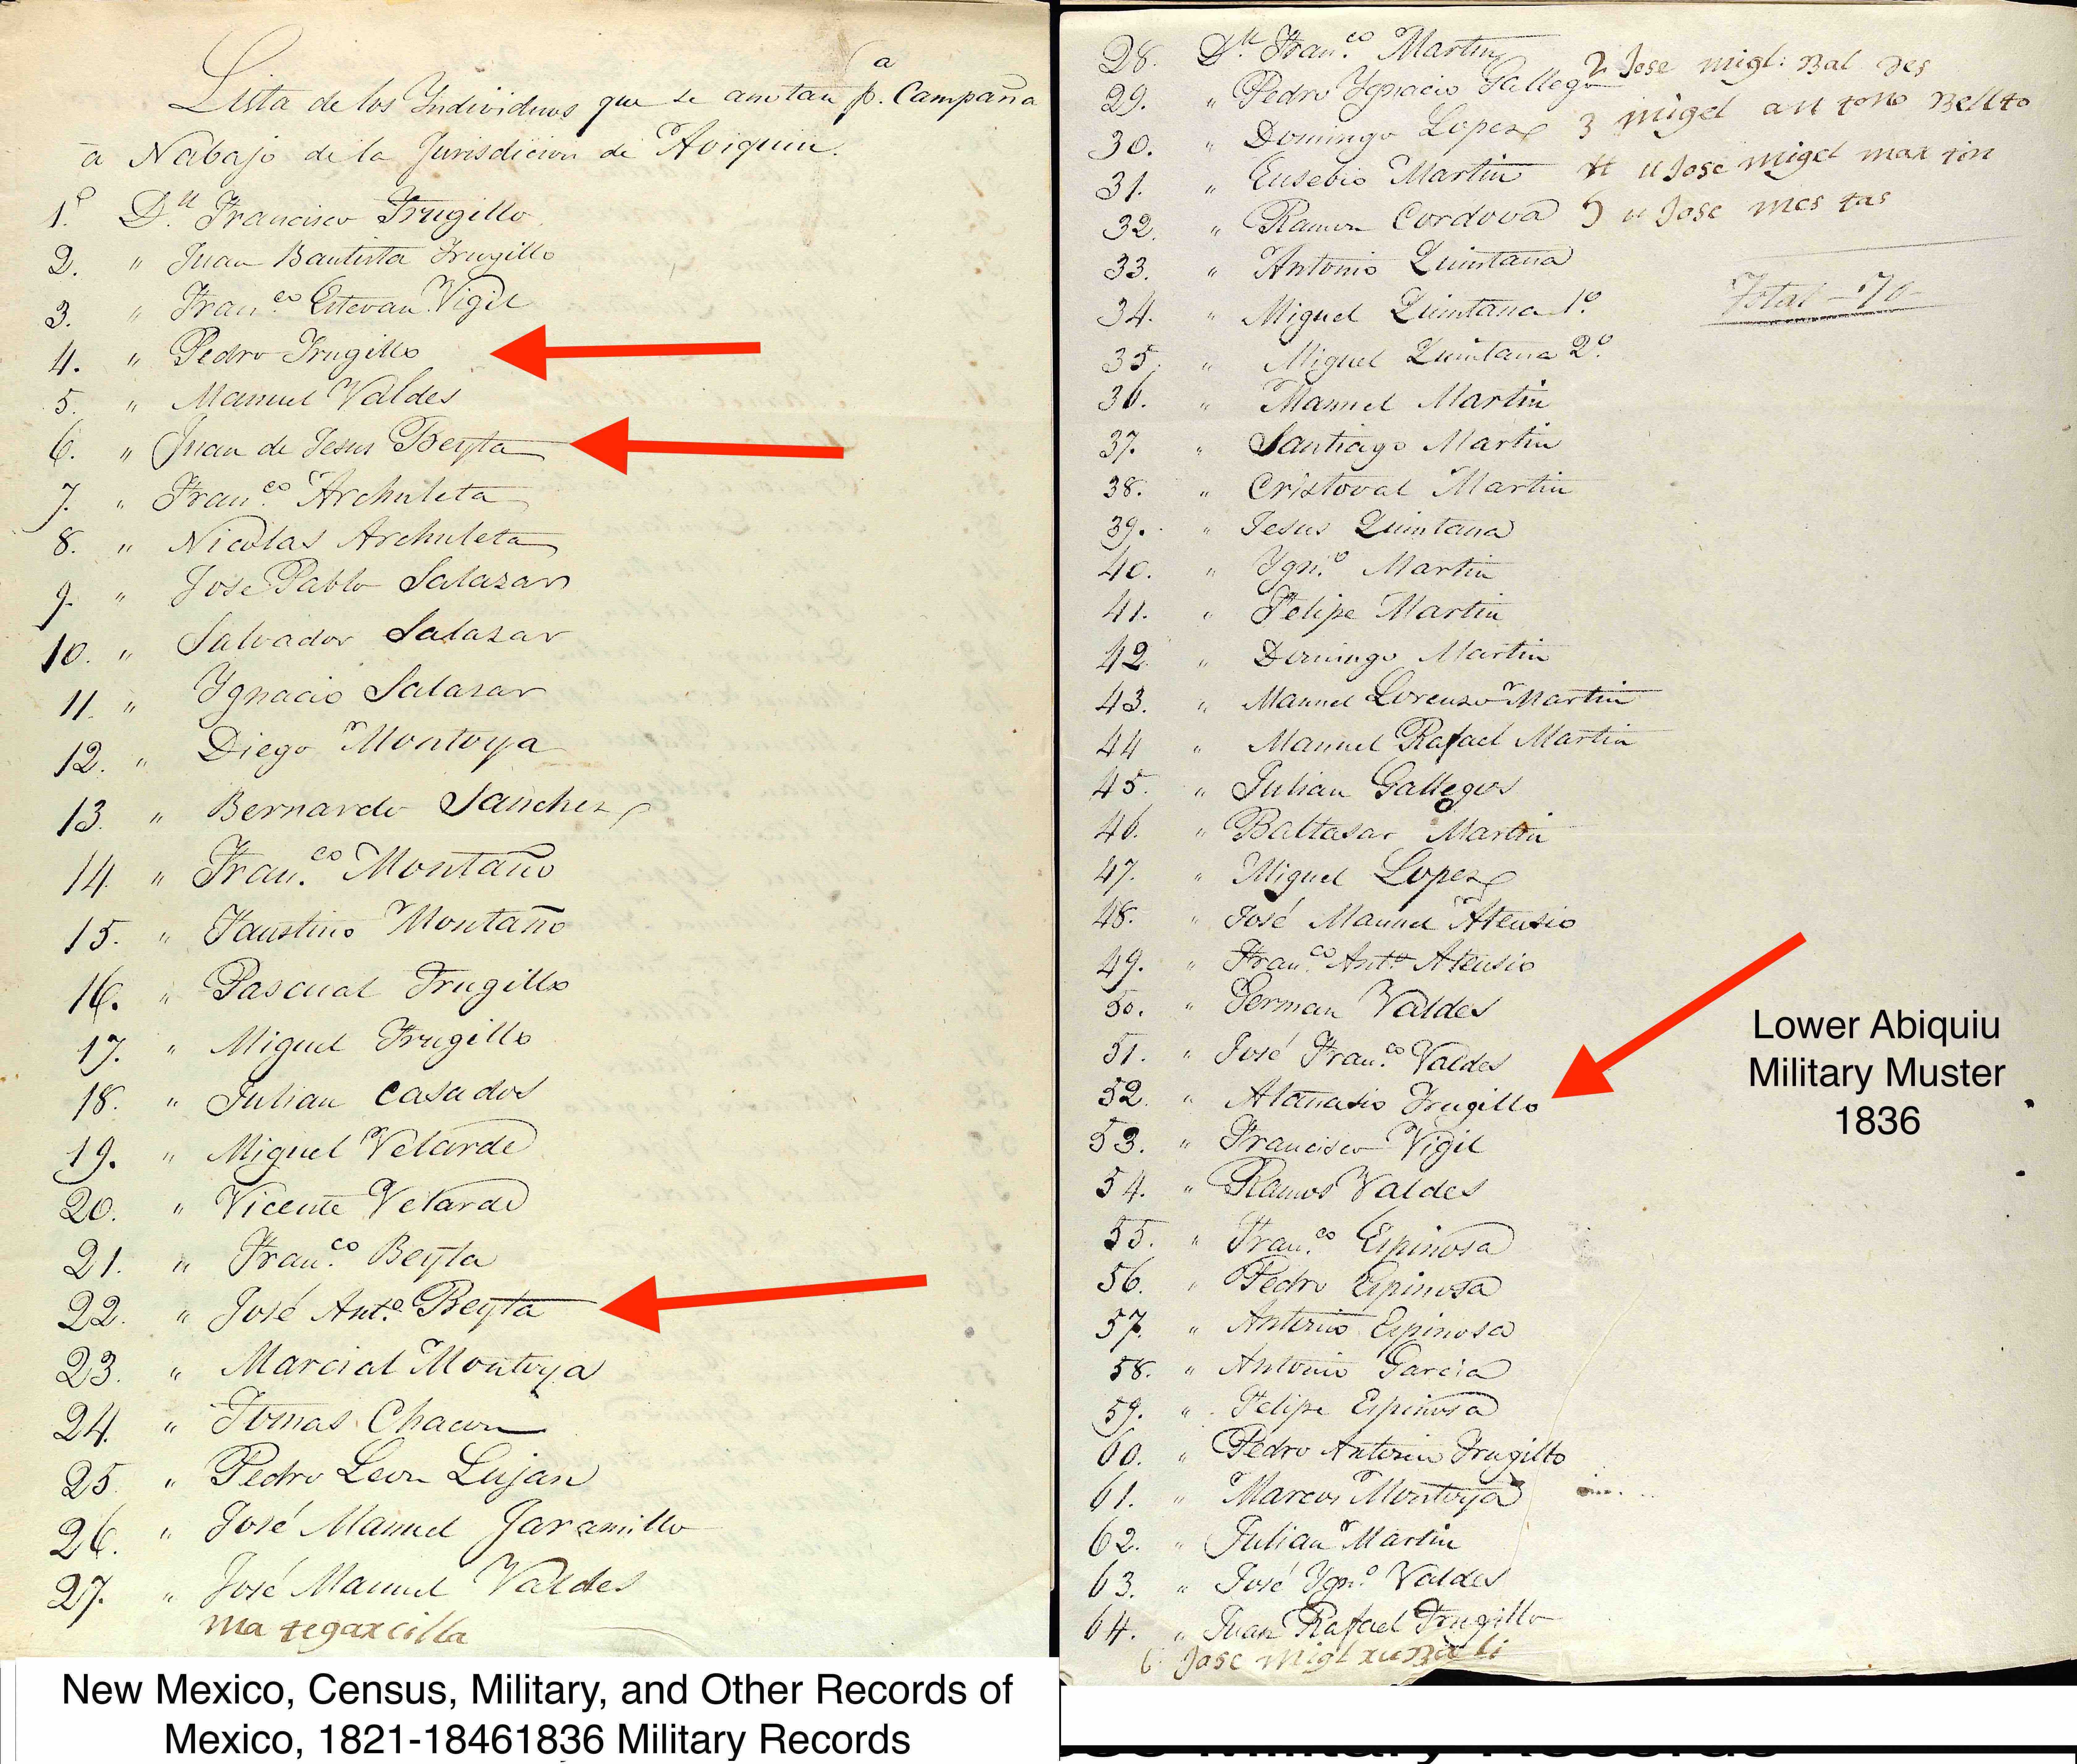 Lista de los Individuos que se anotan pa. Campaña
a Nabajo de la Jurisdicion de Aviquiu.
1º Dn. Francisco Trugillo
2. " Juan Bautista Trugillo
3. " Franco. Estevan Vigil
4. " Pedro Trugillo
5. " Manuel Valdes
6. " Juan de Jesus Beyta
7. " Franco. Archuleta
8. " Nicolas Archuleta
9. " Jose Pablo Salazar
10. " Salvador Salazar
11. " Ygnacio Salazar
12. " Diego Montoya
13. " Bernardo Sanchez
14. " Franco. Montaño
15. " Faustino Montaño
16. " Pascual Trugillo
17. " Miguel Trugillo
18. " Julian Casados
19. " Miguel Velarde
20. " Vicente Velarde
21. " Franco. Beyta
22. " José Anto. Beyta
23. " Marcial Montoya
24. " Tomas Chacon
25. " Pedro Leon Lujan
26. " José Manuel Jaramillo
27. " José Manuel Valdes
New Mexico, Census, Military, and Other Records of
Mexico, 1821-18461836 Military Records
28. Dn. Franco. Martin
29. " Pedro Ygnacio Gallego
30. " Domingo Lopez
31. " Eusebio Martin
32. " Ramon Cordova
33. " Antonio Quintana
34. " Miguel Quintana 1º.
35. " Miguel Quintana 2º.
36. " Manuel Martin
37. " Santiago Martin
38. " Cristoval Martin
39. " Jesus Quintana
40. " Ygno. Martin
41. " Felipe Martin
42. " Domingo Martin
43. " Manuel Lorenzo Martin
44 " Manuel Rafael Martin
45. " Julian Gallegos
46. " Baltasar Martin
47. " Miguel Lopez
48. " José Manuel Atensio
49. " Franco. Anto. Atensio
50. " German Valdes
51. " José Franco. Valdes
52. " Atanasio Trugillo
53. " Francisco Vigil
54. " Ramos Valdes
55. " Franco. Espinosa
56. " Pedro Espinosa
57. " Antonio Espinosa
58. " Antonio Garcia
59. " Felipe Espinosa
60. " Pedro Antonio Trugillo
61. " Marcos Montoya
62. " Julian Martin
63. " José Ygno. Valdes
64. " Juan Rafael Trugillo
6 Jose Migl
2 Jose migl: Bal des
3 migel an tono Bello
4 " Jose migel mar tin
5 " Jose mes tas
Total 70
Lower Abiquiu
Military Muster
1836